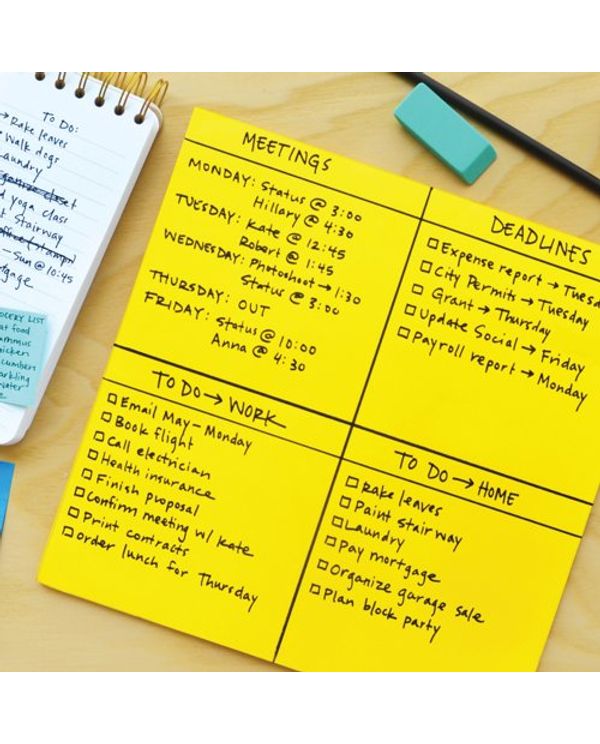 To Do:
→ Rake leaves
Walk dogs
Laundry
yoga class
Stairway
– Sun @ 10:45
GROCERY LIST
food
MEETINGS
MONDAY: Status @ 3:00
Hillary @ 4:30
TUESDAY: Kate @ 12:45
Robert @ 1:45
WEDNESDAY: Photoshoot → 1:30
Status @ 3:00
THURSDAY: OUT
FRIDAY: Status @ 10:00
Anna @ 4:30
DEADLINES
Expense report → Tuesd
City Permits → Tuesday
Grant → Thursday
Update Social → Friday
Payroll report → Monday
TO DO → WORK
Email May – Monday
Book flight
Call electrician
Health insurance
Finish proposal
Confirm meeting w/ Kate
Print contracts
Order lunch for Thursday
TO DO → HOME
Rake leaves
Paint stairway
Laundry
Pay mortgage
Organize garage sale
Plan block party